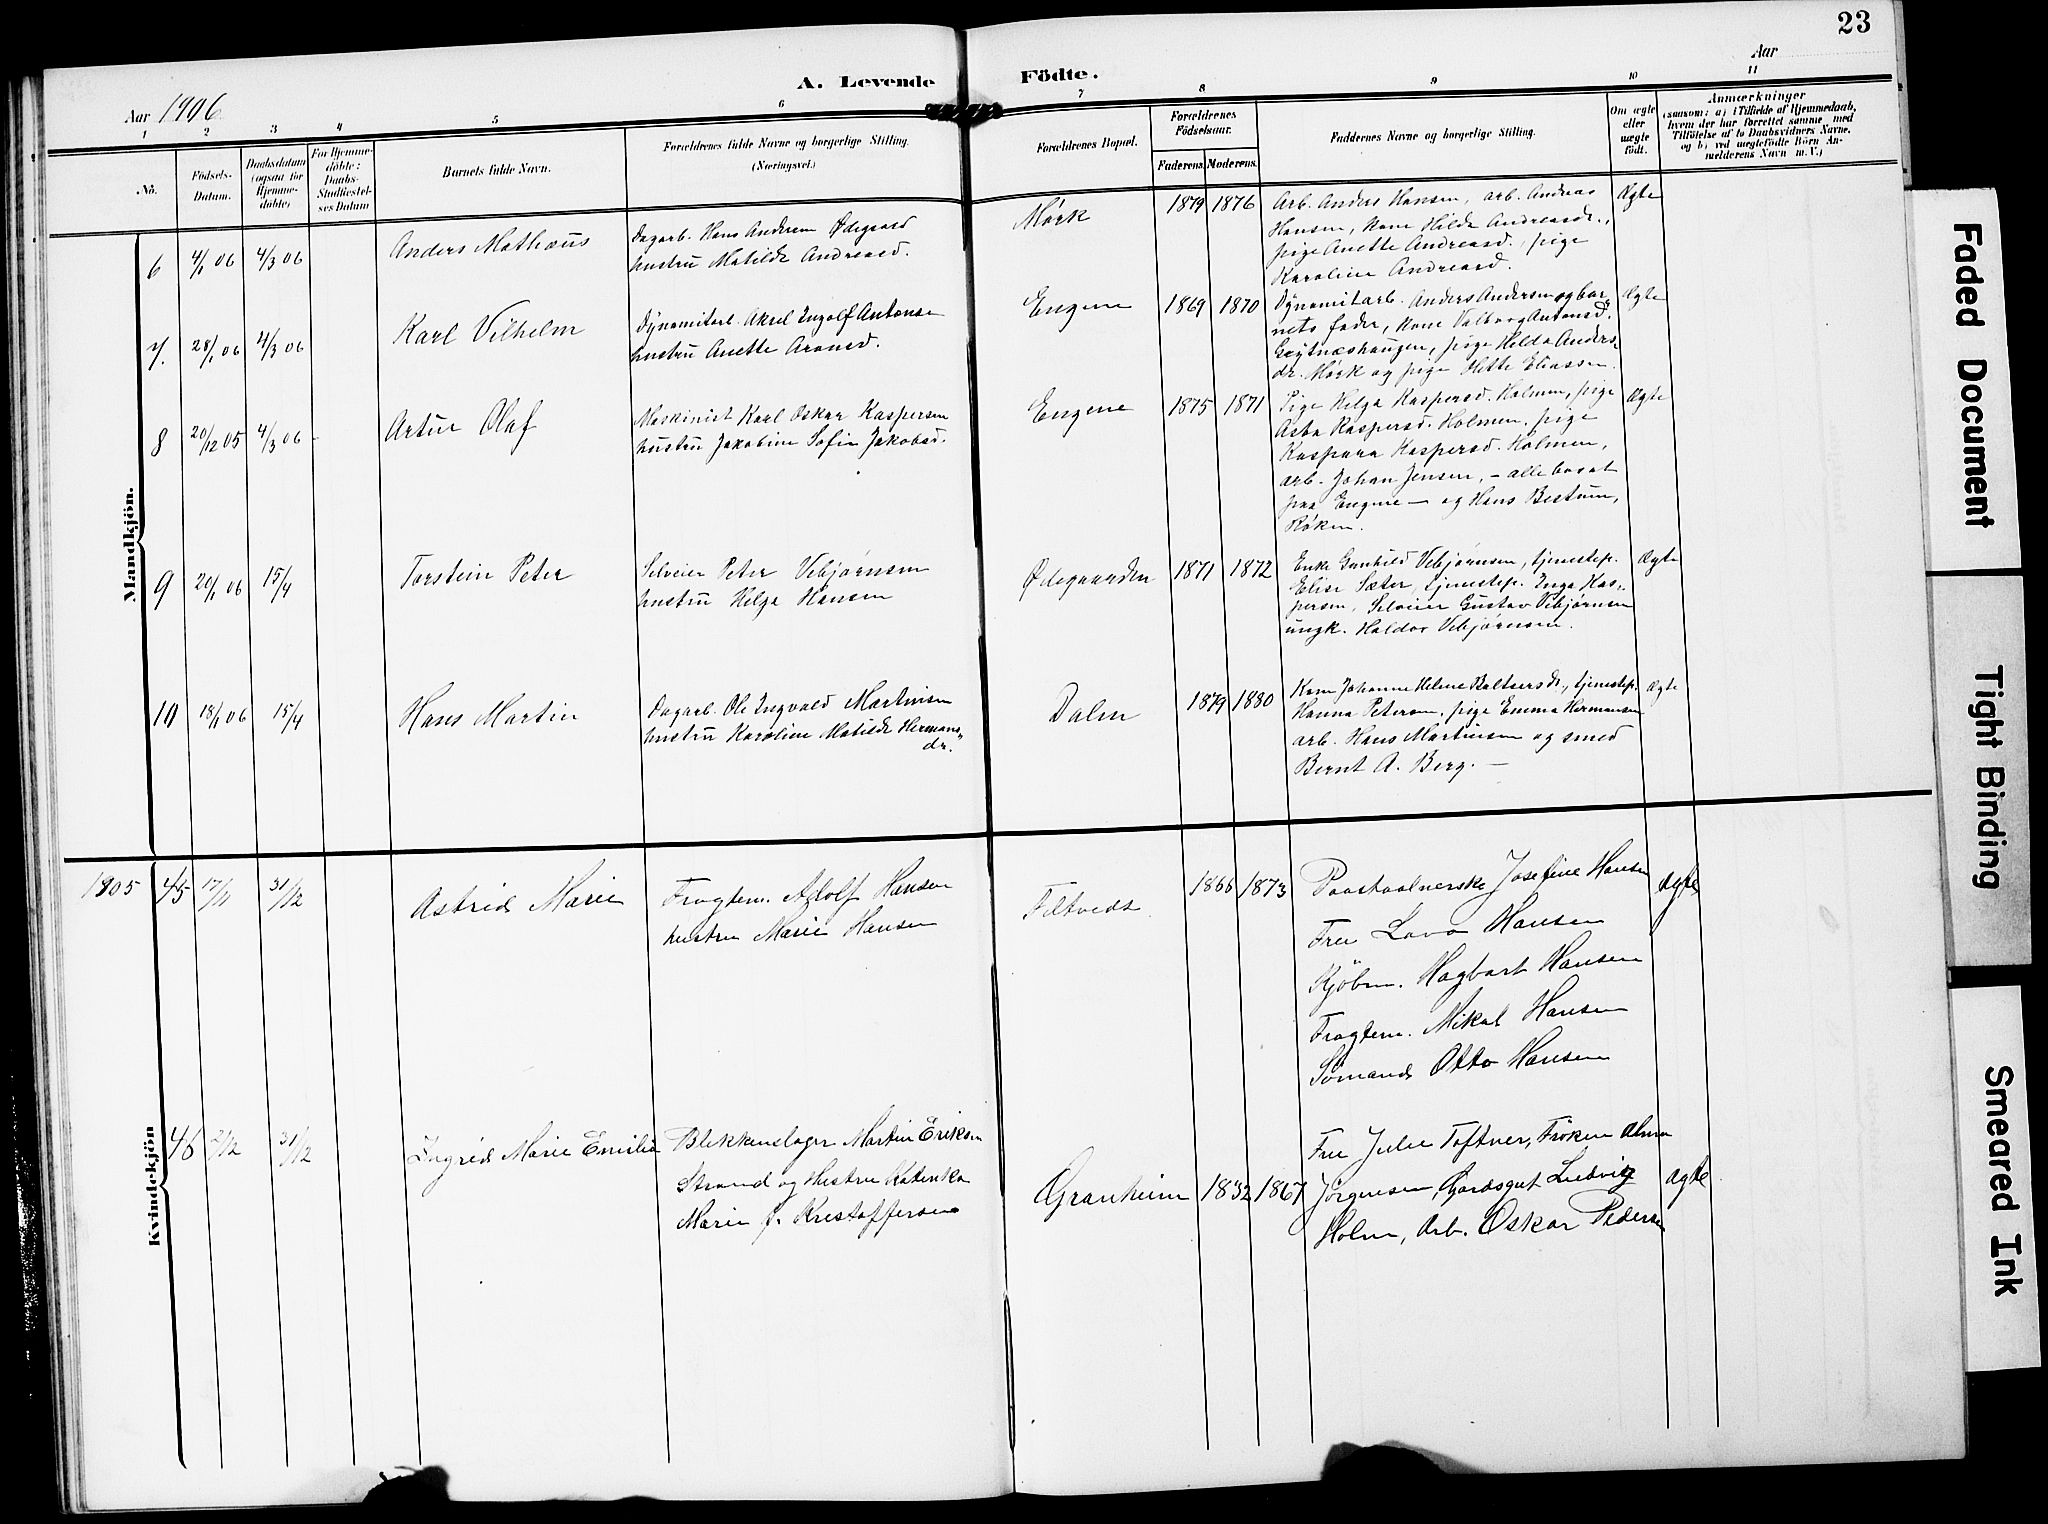 23
A. Levende Födte.
Aar 1906
Aar
1 2 3 4 5 6 7 8 9 10 11
No.
Födsels-
Datum.
Daabsdatum
(ogsaa for
Hjemme-
döbte)
For Hjemme-
döbte:
Daabs-
Stadfæstel-
ses Datum
Barnets fulde Navn.
Forældrenes fulde Navne og borgerlige Stilling.
(Næringsvei.)
Forældrenes Bopæl.
Forældrenes
Födselsaar.
Faderens. Moderens.
Faddernes Navne og borgerlige Stilling.
Om ægte
eller
uægte
född.
Anmærkninger
(saasom: a) i Tilfælde af Hjemmedaab,
hvem der har forrettet samme med
Tilföielse af to Daabsvidners Navne.
og b) ved uægtefödte Börn An-
melderens Navn m. V.)
Mandkjön.
6 4/1 06 4/3 06
Anders Mathæus
Dagarb. Hans Andersen Ødegaard
hustru Matilde Andreasd.
Mørk
1879 1876
Arb. Anders Hansen, arb. Andreas
Hansen, Kone Hilda Andreasdr.,
pige Anette Andreasd., pige
Karoline Andreasd.
Ægte
7. 28/1 06 4/3 06
Karl Vilhelm
Dynamitarb. Aksel Ingolf Antonse
hustru Anette Aronsd.
Engene
1869 1870
Dynamitarb. Anders Andersen og bar-
nets fader, Kone Valborg Antonsd.
pige Hilda Anders-
dr. Mørk og pige Mette Eliassen.
Ægte
8 20/12 05 4/3 06
Artur Olaf
Maskinist Karl Oskar Kaspersen
hustru Jakobine Sofie Jakobsd.
Engene
1875 1871
Pige Helga Kaspersd. Holmen, pige
Asta Kaspersd. Holmen, pige
Kaspara Kaspersd. Holmen,
arb. Johan Jensen, – alle bosat
paa Engene – og Hans Bestum,
Røken.
Ægte
9 20/1 06 15/4
Torstein Peter
Selveier Peter Vebjørnsen
hustru Helga Hansen
Ødegaarden
1871 1872
Enke Gunhild Vebjørnsen, tjenestep.
Elise Sæter, tjenestep. Inga Kas-
persen, Selveier Gustav Vebjørnsen
ungk. Haldor Vebjørnsen.
Ægte
10 18/1 06 15/4
Hans Martin
Dagarb. Ole Ingvald Martinsen
hustru Karoline Matilde Hermans-
dr.
Dalen
1879 1880
Kone Johanne Helene Baltsersdr., tjenestep.
Hanna Petersen, pige Emma Hermansen
arb. Hans Martinsen og smed
Bernt A. Berg. –
Ægte
Kvindekjön
1905 45 17/11 31/12
Astrid Marie
Fragtem. Adolf Hansen
hustru Marie Hansen
Filtvedt
1866 1873
Josefine Hansen
Fru Lava Hansen
Kjöbm. Hagbart Hansen
Fragtem. Mikal Hansen
Sömand Otto Hansen
ægte
46 2/12 31/12
Ingrid Marie Emilie
Blikkenslager Martin Eriksen
Strand og Hustru Katinka
Marie f. Kristoffersen
Granheim
1832 1867
Fru Julie Toftner, Fröken Alma
Jörgensen, Gardsgut Ludvig
Holm, Arb. Oskar Pedersen
ægte
Faded Document
Tight Binding
Smeared Ink